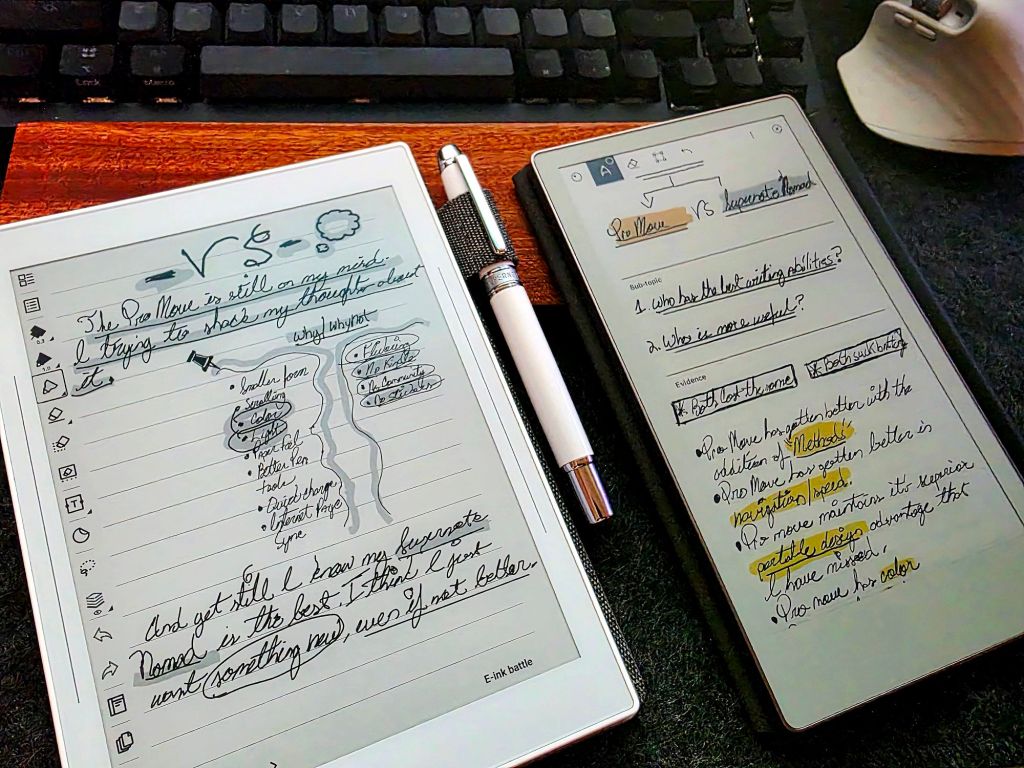 VS
The Pro Move is still on my mind.
I trying to shake my thoughts about
it.
why/whynot
• Smaller form
• Scrolling
• Color
• Light
• Paper feel
• Better Pen
tools
• Quick change
• Internet Page
Sync
• No Kindle
• No Community
And yet still I know my Supernote
Nomad is the best. I think I just
want something new, even if not better.
E-ink battle
Pro Move VS Supernote Nomad
Sub-topic
1. Who has the best writing abilities?
2. Who is more useful?
Evidence
* Both Cost the same
* Both suck battery
• Pro Move has gotten better with the
addition of "Methods"
• Pro Move has gotten better in
navigation/speed.
• Pro move maintains it's superior
portable design advantage that
I have missed.
• Pro move has color